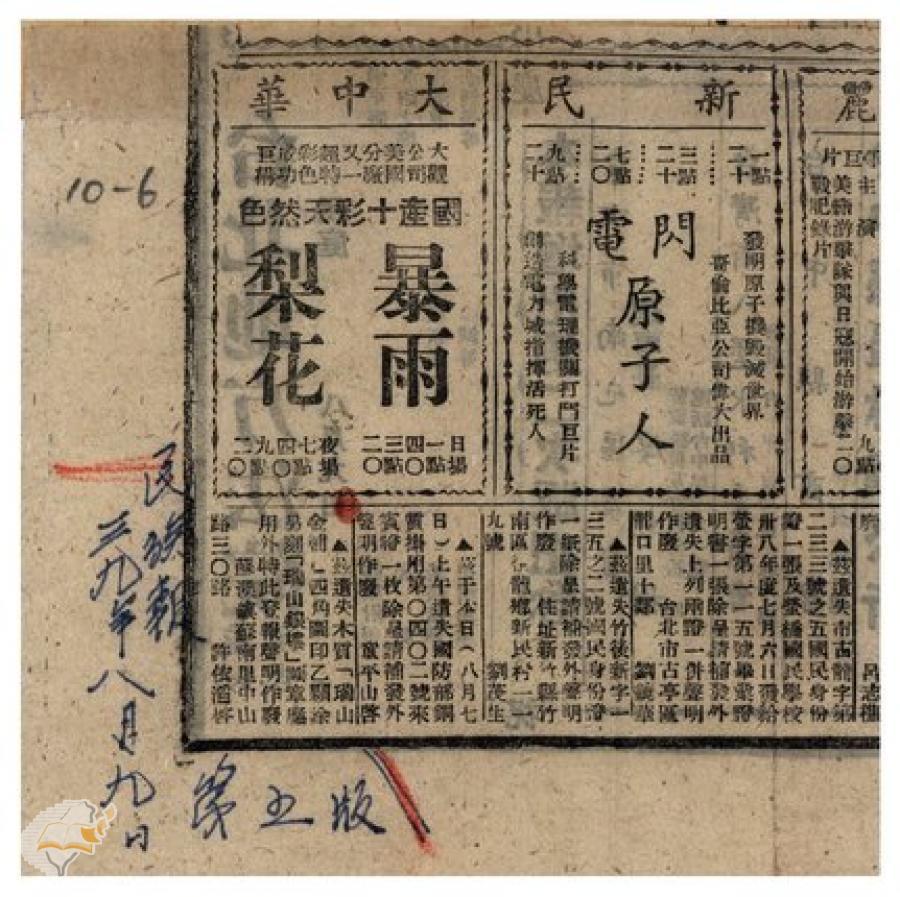 10-6
民族報
三九年八月九日
第五版
麗
新民
一點二十
三點二十
七點二〇
九點二十
發明原子機毀滅世界
哥倫比亞公司偉大出品
閃電
原子人
科學電理機關打鬥巨片
創造電力城指揮活死人
大中華
大觀公司美國分廠又一超特彩色成功巨構
國產十彩天然色
暴雨
梨花
日場一點四〇三點二〇
夜場七點四〇九點二〇
美緬游擊隊與日寇開始游擊
戰紀錄片
▲茲遺失市古龍字第
二三三號之五國民身份
證一張及螢橋國民學校
卅八年度七月六日發給
螢字第一一五號畢業證
明書一張除呈請補發外
遺失上列兩證一併聲明
作廢 台北市古亭區
龍口里十鄰 劉義華
▲茲遺失竹後新字一
三五之二號國民身份證
一紙除呈請補發外聲明
作廢 住址新竹縣竹
南區後龍鄉新民村一一
九號 劉茂生
▲茲于本日(八月七
日)上午遺失國防部銅
質證章附第〇四〇二號來
賓證一枚除呈請補發外
聲明作廢 童平山啓
▲茲遺失木質「瑞山
金鋪」四角圖印乙顆除
另刻「瑞山銀樓」圖章應
用外特此登報聲明作廢